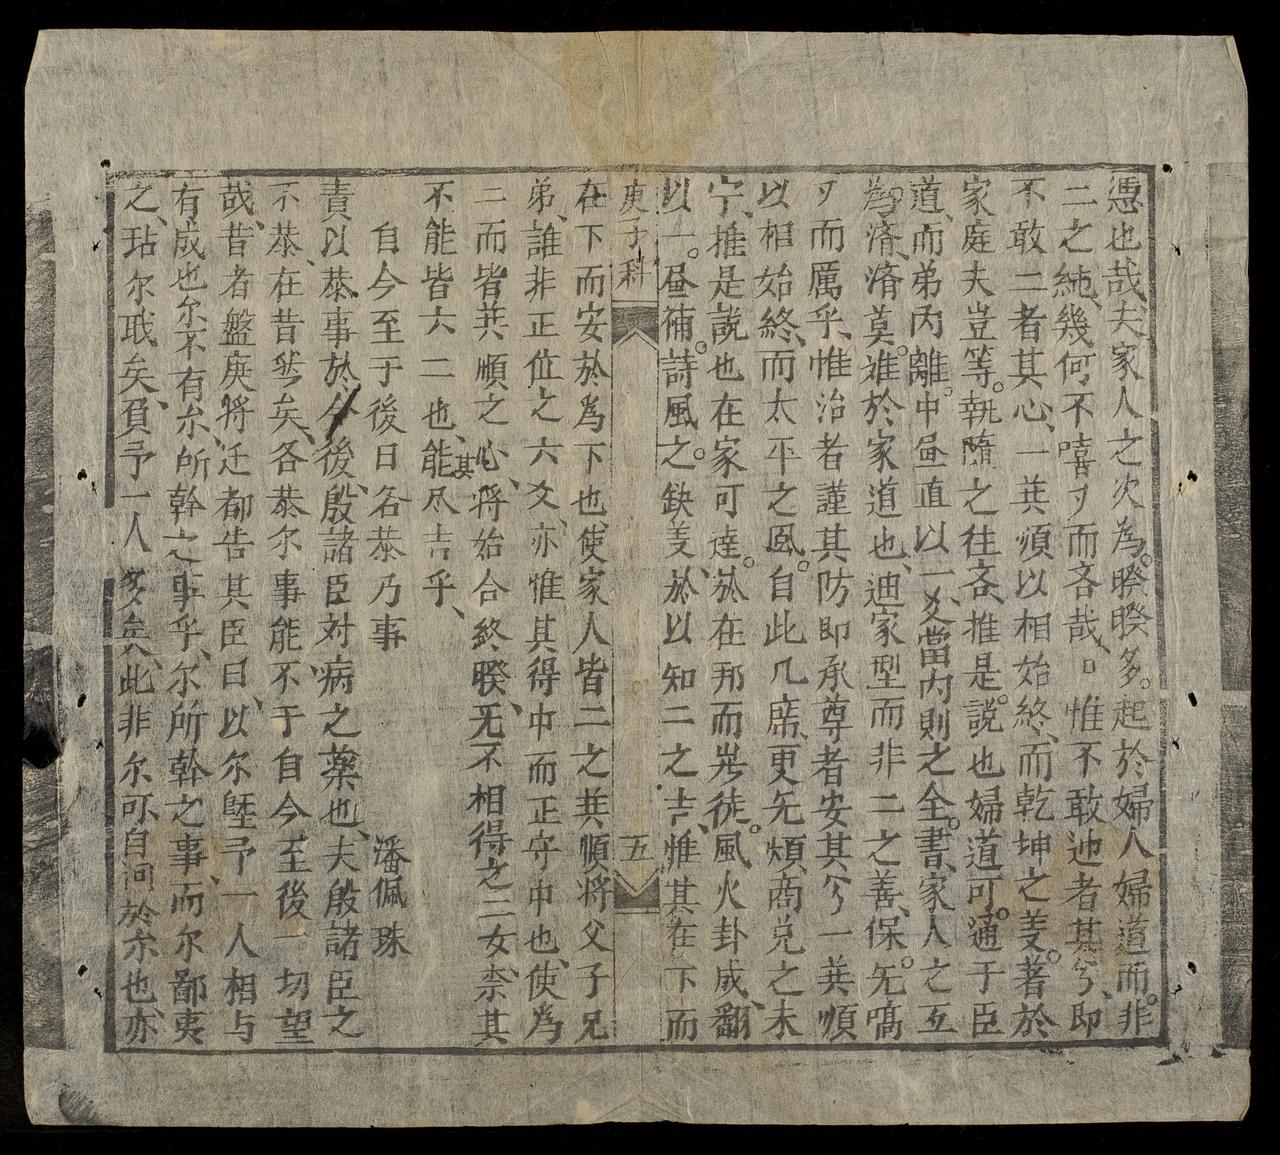 憑也哉夫家人之次為。睽睽多。起於婦人婦道而。非
二之純、幾何不嘻刄而吝哉、惟不敢迆者其兮、即
不敢二者其心、一其順以相始終、而乾坤之義。著於
家庭夫豈等。執隨之往吝、推是。說也婦道可。通于臣
道、而弟丙離。中昼直以一爻當內則之全。書、家人之五
為。濟、濟莫。進於家道也、迪家型而非二之善、保。旡嗃
刄而厲乎、惟治者謹其防即承尊者安其兮一其順
以相始終、而太平之風。自此几席、更旡煩商兌之未
宁、推是說也在家可達。於在邦而癶徒。風火卦成、翻
以一。昼補。詩風之。缺義、於以知二之吉、惟其在下而
庚子科
五
在下而安於為下也、使家人皆二之其順將父子兄
弟、誰非正位之六爻、亦惟其得中而正守中也、使為
二而皆其順之心、將始合終睽、旡不相得之二女、柰其
不能皆六二也、能其尽吉乎、
自今至于後日各恭乃事 潘佩珠
責以恭、事於今後、殷諸臣対病之藥也、夫殷諸臣之
不恭、在昔然矣、各恭尔事能不于自今至後一切望
哉、昔者盤庚將迁都告其臣曰、以尔曁予一人相与
有成也尔不有尔所幹之事乎、尔所幹之事、而尔鄙夷
之、玷尔戝矣、負予一人多矣、此非尔可自问於尔也、亦